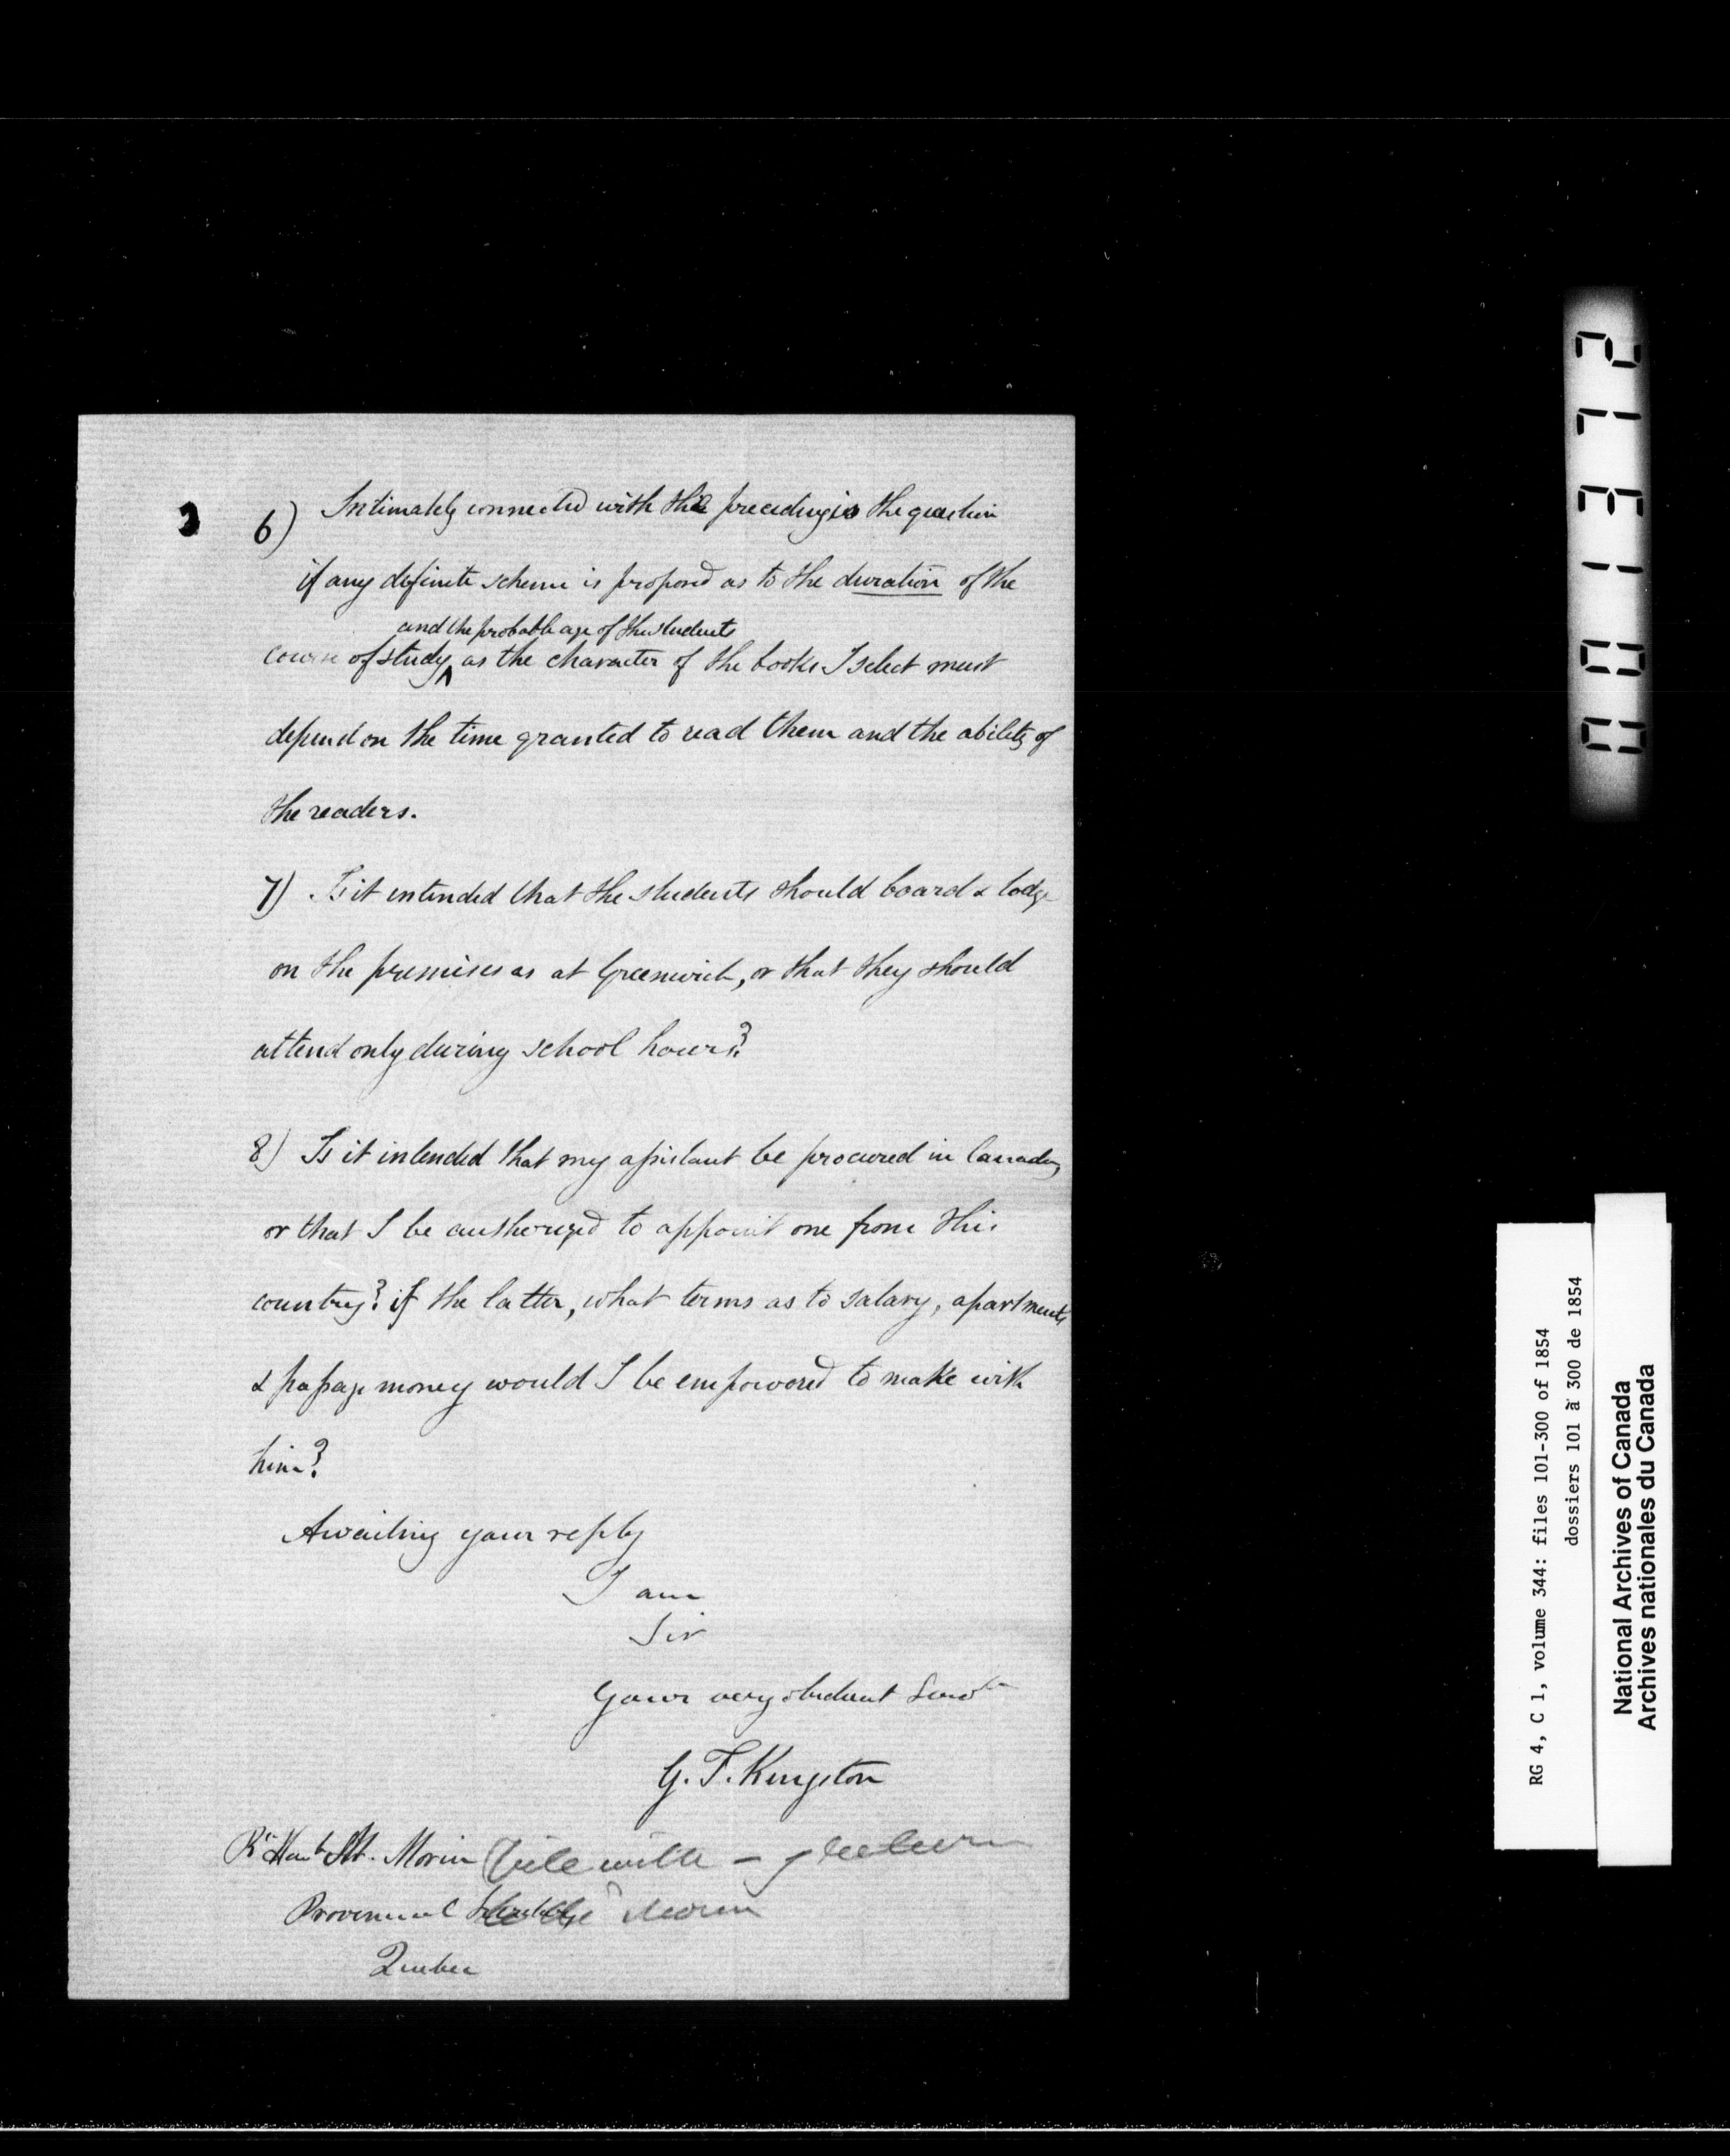 6) Intimately connected with the preceding is the question
if any definite scheme is proposed as to the duration of the
and the probable age of the students
course of study as the character of the books I select must
depend on the time granted to read them and the ability of
the readers.
7) Is it intended that the students should board & lodge
on the premises as at Greenwich, or that they should
attend only during school hours?
8) Is it intended that my assistant be procured in Canada,
or that I be authorized to appoint one from this
country? if the latter, what terms as to salary, apartments
& passage money would I be empowered to make with
him?
Awaiting your reply
I am
Sir
Your very obedient Servt
G. T. Kingston
Rt Honble Morin
Provincial Secretary Morin
Quebec
2
1
3
1
0
0
RG 4, C 1, volume 344: files 101-300 of 1854
dossiers 101 à 300 de 1854
National Archives of Canada
Archives nationales du Canada